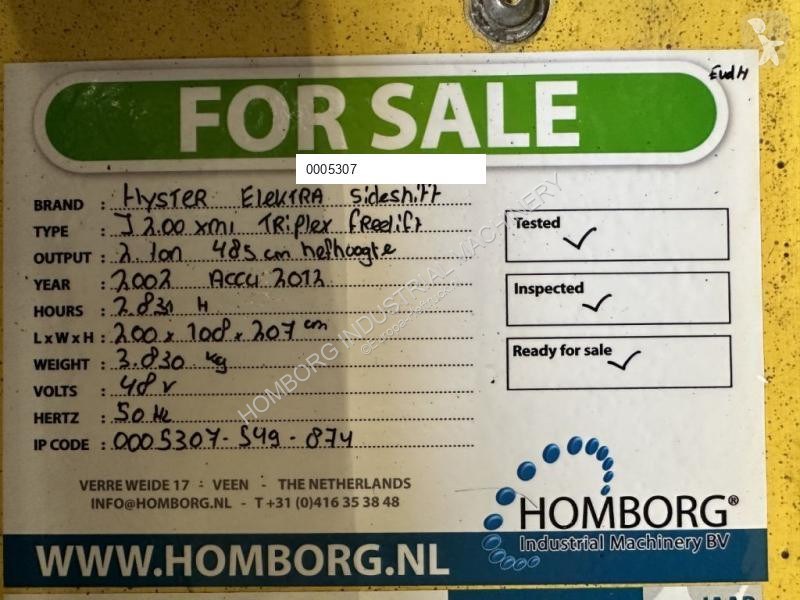 Eud H
FOR SALE
0005307
BRAND : HYSTER ElEKTRA Sideshift
TYPE : J 2.00 xmi TRiplex freelift
OUTPUT : 2.Ton 485 cm hefhoogte
YEAR : 2002 Accu 2012
HOURS : 2.831 H
L x W x H : 200 x 108 x 207 cm
WEIGHT : 3.830 kg
VOLTS : 48 v
HERTZ : 50 Hz
IP CODE : 0005307-549-874
Tested ✓
Inspected ✓
Ready for sale ✓
VERRE WEIDE 17 - VEEN - THE NETHERLANDS
INFO@HOMBORG.NL - T +31 (0)416 35 38 48
HOMBORG®
Industrial Machinery BV
WWW.HOMBORG.NL
HOMBORG INDUSTRIAL MACHINERY
JAAR